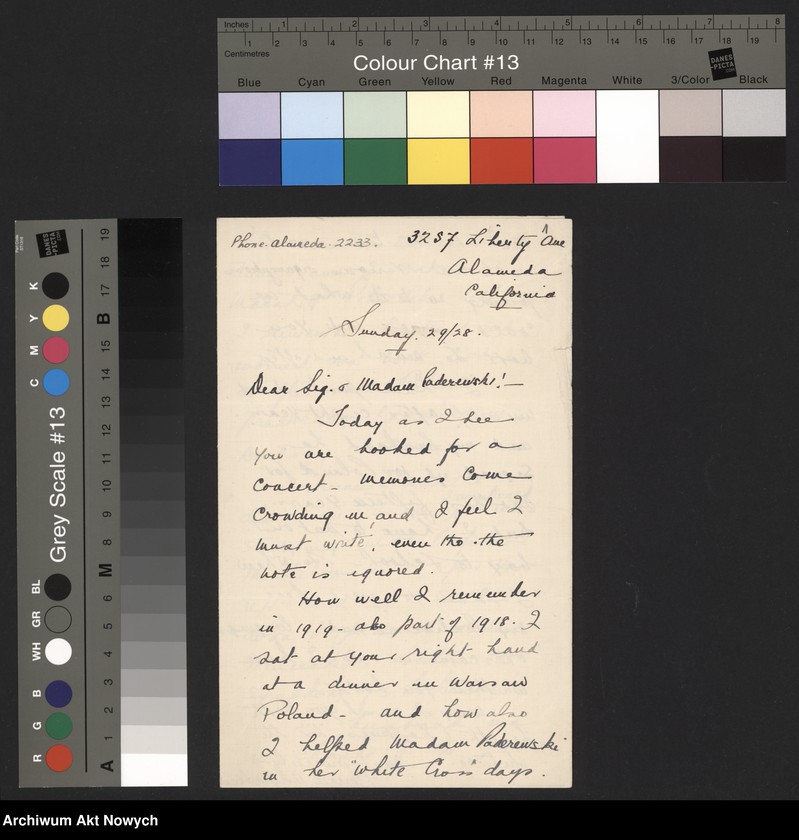 Inches 1 2 3 4 5 6 7 8
1 2 3 4 5 6 7 8 9 10 11 12 13 14 15 16 17 18 19
Centimetres
Colour Chart #13
DANES-PICTA.COM
Blue Cyan Green Yellow Red Magenta White 3/Color Black
Grey Scale #13
K Y M C
BL GR WH
B G R
A 1 2 3 4 5 6 M 8 9 10 11 12 13 14 15 B 17 18 19
Phone. Alameda - 2233.
3257 Liberty Ave
Alameda
California
Sunday. 29/28.
Dear Sig. & Madam Paderewski! —
Today as I see
you are booked for a
concert - memories come
crowding in, and I feel I
must write, even tho the
note is ignored.
How well I remember
in 1919 - also part of 1918. I
sat at your right hand
at a dinner in Warsaw
Poland - and how also
I helped Madam Paderewski
in her "White Cross" days.
Archiwum Akt Nowych